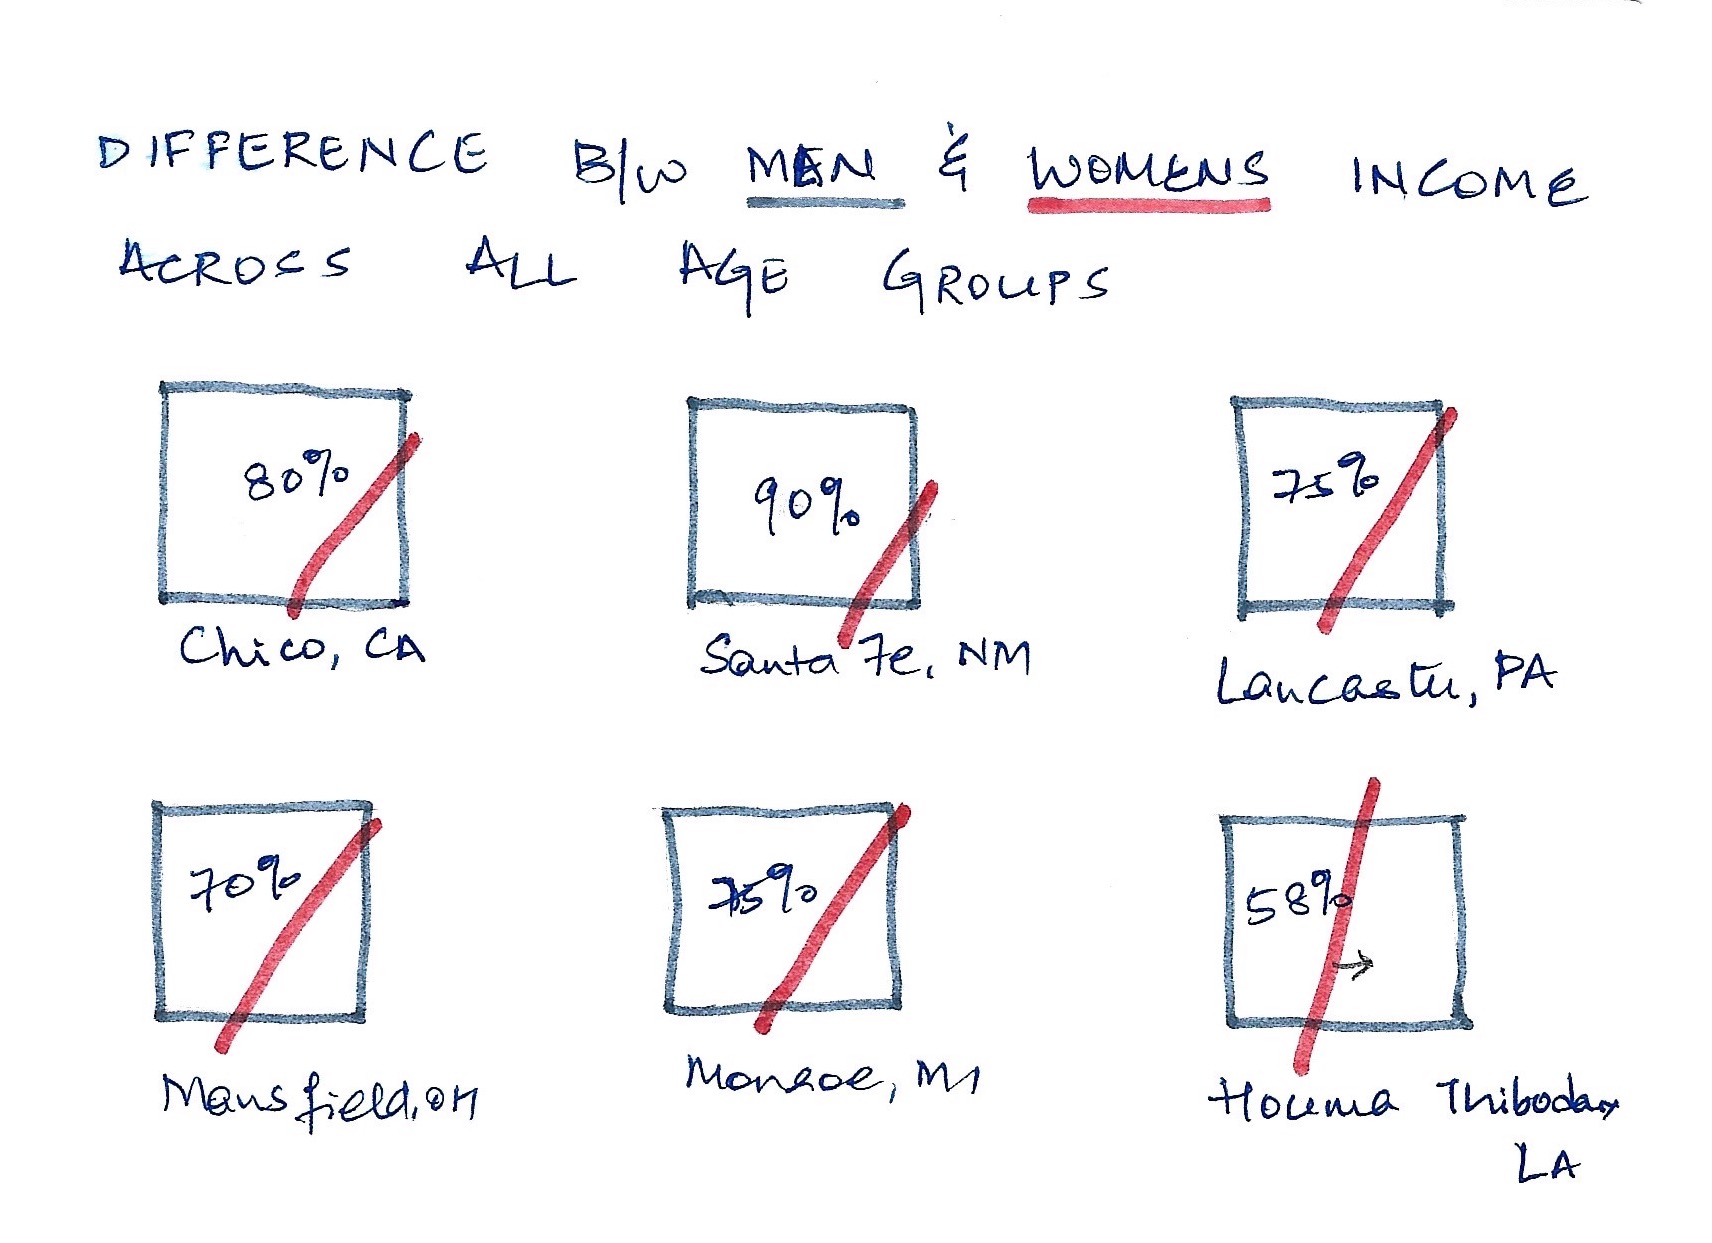 DIFFERENCE B/W MEN & WOMENS INCOME
ACROSS ALL AGE GROUPS
80%
90%
75%
Chico, CA
Santa Fe, NM
Lancaster, PA
70%
75%
58%
Mansfield, OH
Monroe, MI
Houma Thibodax
LA